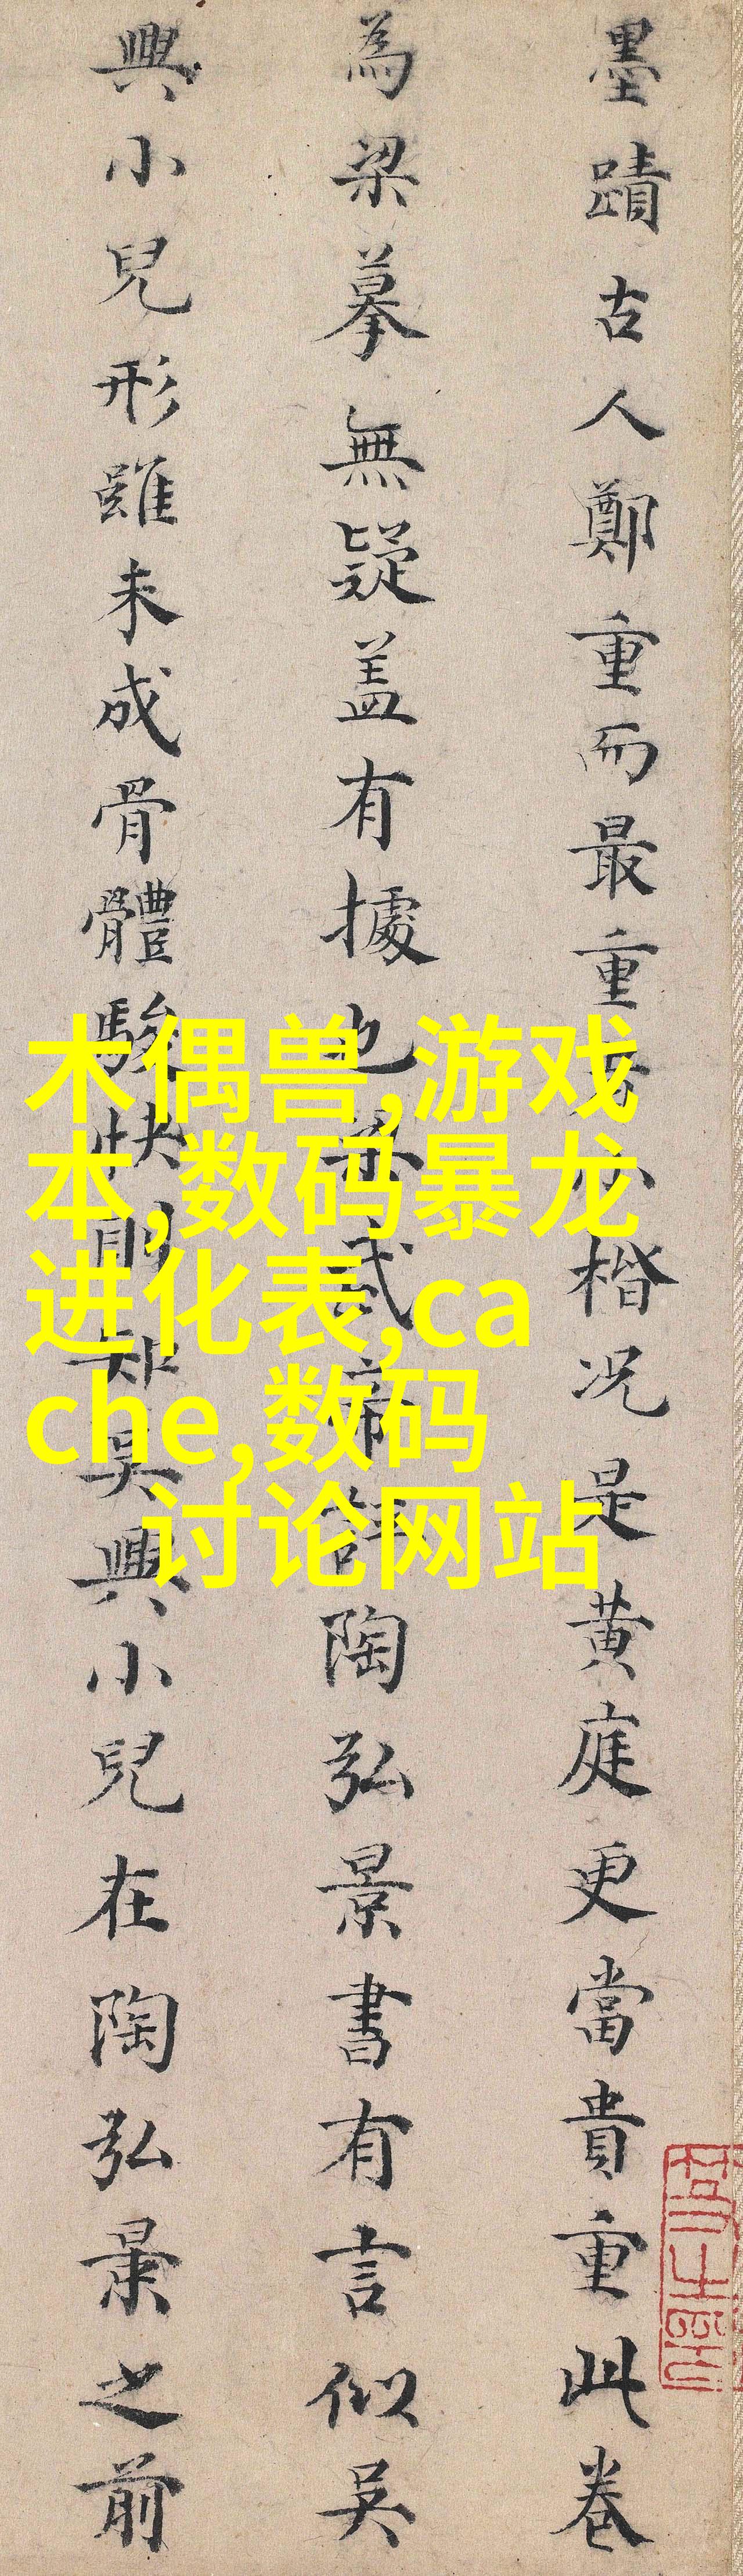 墨蹟古人鄭重而最重者小楷况是黄庭更當貴重此卷
為梁摹無疑盖有據也梁武帝評陶弘景書有言似吴
興小兒形雖未成骨體駿快則知吴興小兒在陶弘景之前
木偶兽,游戏
本,数码暴龙
进化表,ca
che,数码
讨论网站